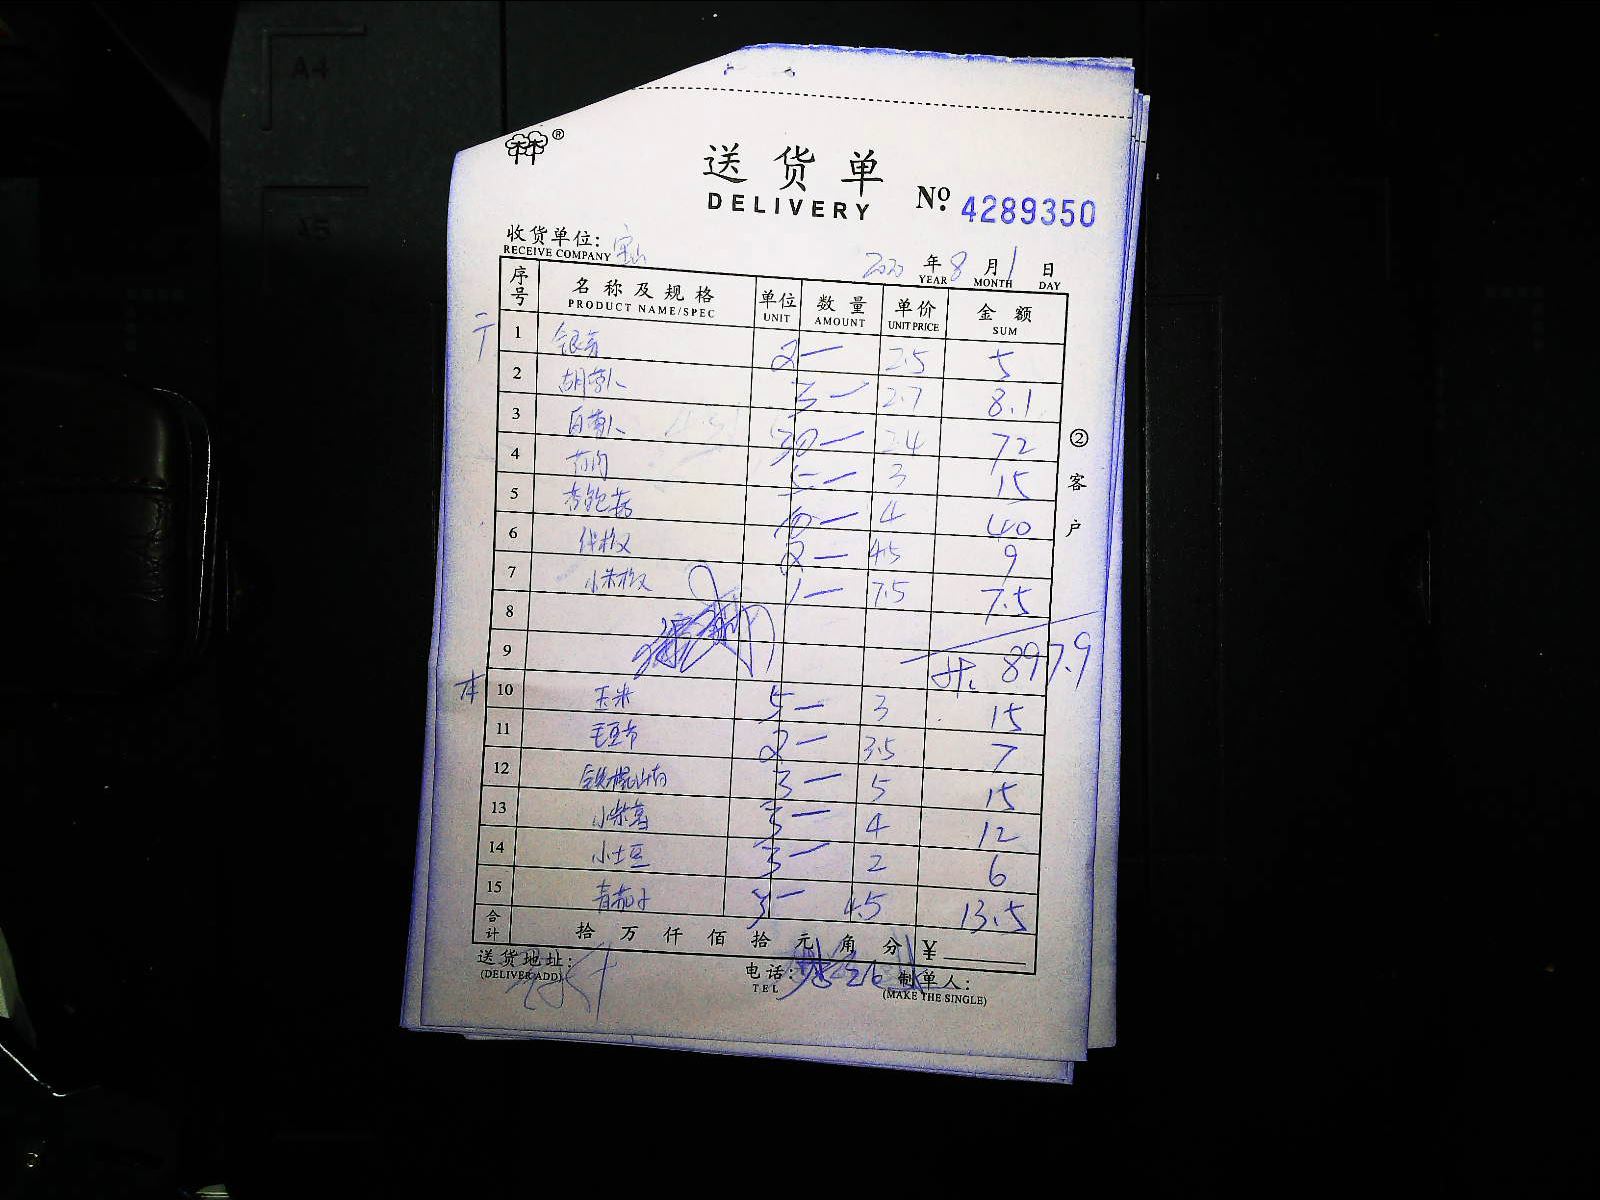 A4
A5
®
送货单
DELIVERY
Nº. 4289350
收货单位: 宝山
RECEIVE COMPANY
2020 年 8 月 1 日
YEAR MONTH DAY
序号 名称及规格 单位 数量 单价 金额
PRODUCT NAME/SPEC UNIT AMOUNT UNIT PRICE SUM
二 1 银芽 2— 2.5 5
2 胡萝卜 3— 2.7 8.1
3 白萝卜 30— 2.4 72
4 5— 3 15
5 杏鲍菇 10— 4 40
6 2— 4.5 9
7 小米椒 1— 7.5 7.5
8
9 897.9
10 玉米 5— 3 15
11 毛豆节 2— 3.5 7
12 铁棍山药 3— 5 15
13 小紫薯 3— 4 12
14 小土豆 3— 2 6
15 青茄子 3— 4.5 13.5
合计 拾 万 仟 佰 拾 元 角 分 ¥
② 客户
送货地址:
(DELIVER ADD)
电话:
TEL
制单人:
(MAKE THE SINGLE)